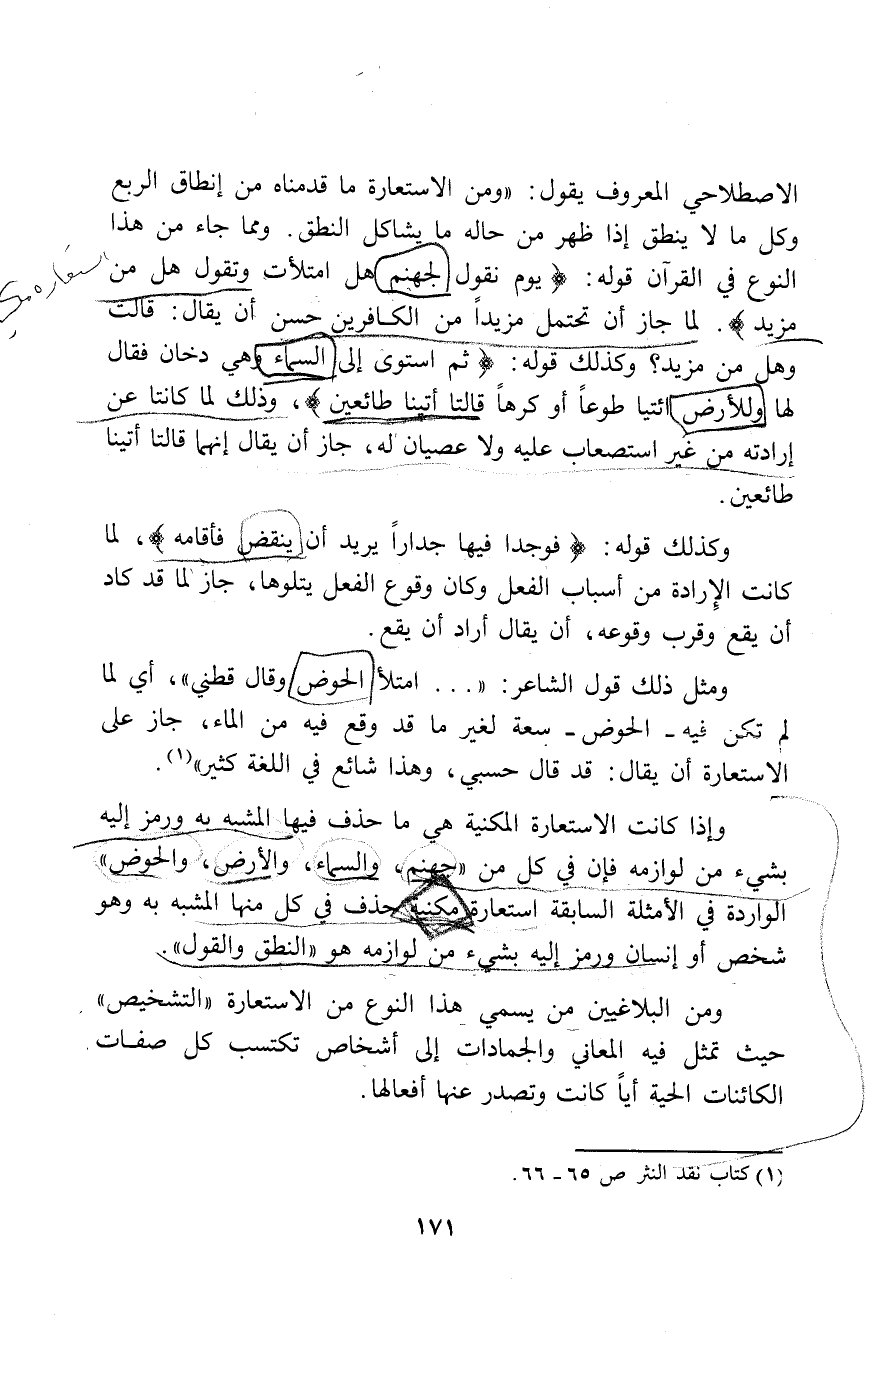 الاصطلاحي المعروف يقول: «ومن الاستعارة ما قدمناه من إنطاق الربع
وكل ما لا ينطق إذا ظهر من حاله ما يشاكل النطق. ومما جاء من هذا
النوع في القرآن قوله: ﴿ يوم نقول لجهنم هل امتلأت وتقول هل من
مزيد ﴾. لما جاز أن تحتمل مزيداً من الكافرين حسن أن يقال: قالت
وهل من مزيد؟ وكذلك قوله: ﴿ ثم استوى إلى السماء وهي دخان فقال
لها وللأرض ائتيا طوعاً أو كرهاً قالتا أتينا طائعين ﴾، وذلك لما كانتا عن
إرادته من غير استصعاب عليه ولا عصيان له، جاز أن يقال إنهما قالتا أتينا
طائعين.
وكذلك قوله: ﴿ فوجدا فيها جداراً يريد أن ينقض فأقامه ﴾، لما
كانت الإرادة من أسباب الفعل وكان وقوع الفعل يتلوها، جاز لما قد كاد
أن يقع وقرب وقوعه، أن يقال أراد أن يقع.
ومثل ذلك قول الشاعر: «... امتلأ الحوض وقال قطني»، أي لما
لم تكن فيه - الحوض - سعة لغير ما قد وقع فيه من الماء، جاز على
الاستعارة أن يقال: قد قال حسبي، وهذا شائع في اللغة كثير»(١).
وإذا كانت الاستعارة المكنية هي ما حذف فيها المشبه به ورمز إليه
بشيء من لوازمه فإن في كل من «جهنم، والسماء، والأرض، والحوض»
الواردة في الأمثلة السابقة استعارة مكنية حذف في كل منها المشبه به وهو
شخص أو إنسان ورمز إليه بشيء من لوازمه هو «النطق والقول».
ومن البلاغيين من يسمي هذا النوع من الاستعارة «التشخيص»
حيث تمثل فيه المعاني والجمادات إلى أشخاص تكتسب كل صفات
الكائنات الحية أياً كانت وتصدر عنها أفعالها.
(١) كتاب نقد النثر ص ٦٥ - ٦٦.
١٧١
استعاره